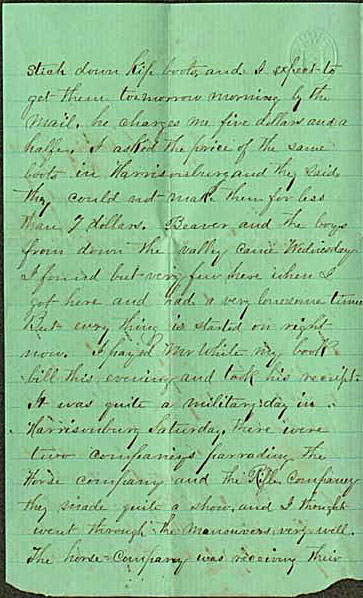 Stich down kip boots, and I expect to
get them tomorrow morning by the
mail. he charges me five dollars and a
half. I asked the price of the same
boots in Harrisonburg and they said
they could not make them for less
than 7 dollars. Beaver and the boys
from down the valley came Wednesday
I found but very few here when I
got here and had a very lonesome time
But every thing is started on right
now. I payed Mr White my book
bill this evening and took his receipt.
It was quite a military day in
Harrisonburg Saturday, there were
two companys parrading the
Horse company and the Rifle Company
they made quite a show, and I thought
went through the manouvers very well.
The horse company was receiving their